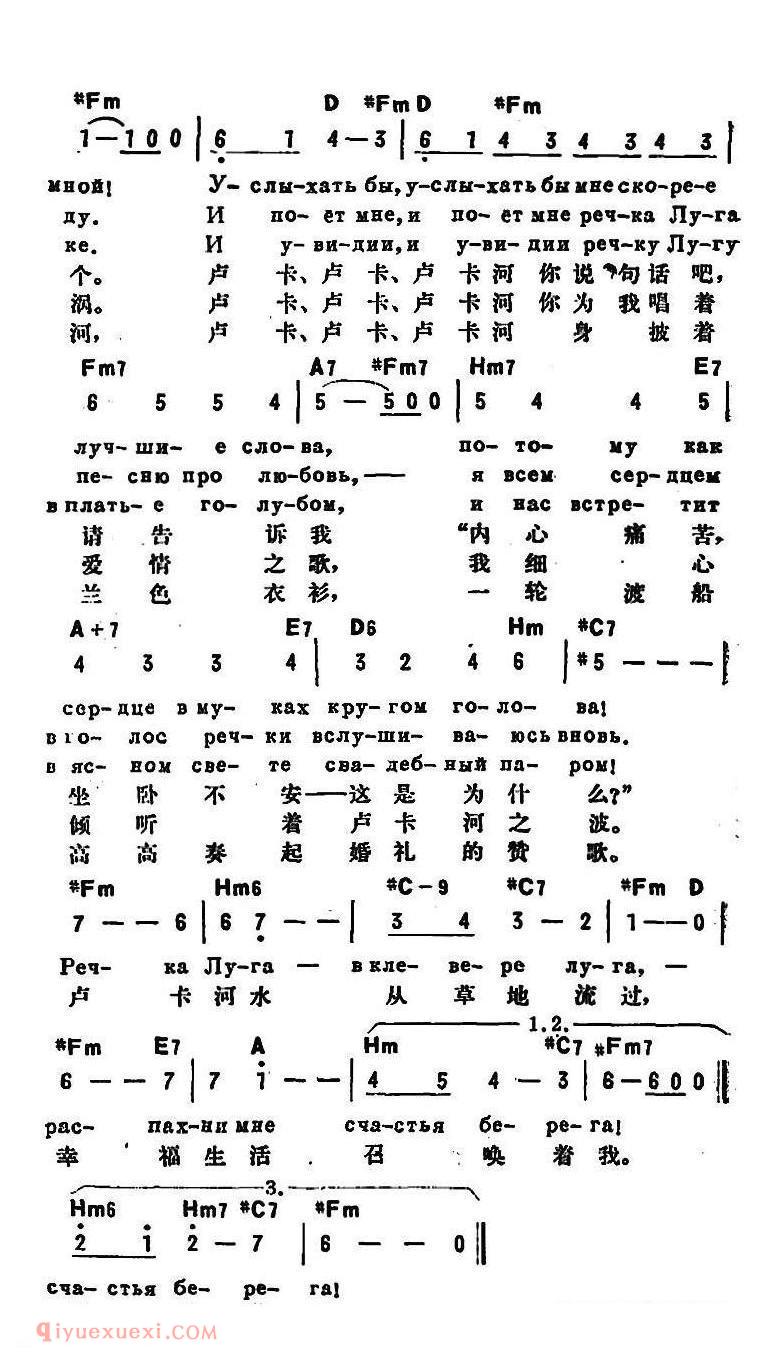 #Fm D #Fm D #Fm
1—1 0 0 | 6 1 4—3 | 6 1 4 3 4 3 4 3 |
мной! У- слы-хать бы, у-слы-хать бы мне ско-ре-е
ду. И по-ёт мне, и по-ёт мне реч-ка Лу-га
ке. И у-ви-дии, и у-ви-дии реч-ку Лугу
个。 卢 卡、卢 卡、卢 卡 河 你 说 句 话 吧,
涡。 卢 卡、卢 卡、卢 卡 河 你 为 我 唱 着
河, 卢 卡、卢 卡、卢 卡 河 身 披 着
Fm7 A7 #Fm7 Hm7 E7
6 5 5 4 | 5 — 5 0 0 | 5 4 4 5 |
луч-ши-е сло-ва, по-то-му как
пе-сню про лю-бовь,— я всем сер-дцем
в плать-е го-лу-бом, и нас встре-тит
请 告 诉 我 “内 心 痛 苦,
爱 情 之 歌, 我 细 心
兰 色 衣 衫, 一 轮 渡 船
A+7 E7 D6 Hm #C7
4 3 3 4 | 3 2 4 6 | #5 — — — |
сер-дце в му-ках кру-гом го-ло-ва!
в го-лос реч-ки вслуши-ва-юсь вновь.
в яс-ном све-те сва-деб-ный па-ром!
坐 卧 不 安——这 是 为 什 么?”
倾 听 着 卢 卡 河 之 波。
高 高 奏 起 婚 礼 的 赞 歌。
#Fm Hm6 #C-9 #C7 #Fm D
7 — — 6 | 6 7 — — | 3 4 3 — 2 | 1 — — 0 |
Реч-ка Лу-га — в кле-ве-ре лу-га, —
卢 卡 河 水 从 草 地 流 过,
1.2.
#Fm E7 A Hm #C7 #Fm7
6 — — 7 | 7 1 — — | 4 5 4 — 3 | 6 — 6 0 0 ‖
рас-пах-ни мне сча-стья бе-ре-га!
幸 福 生 活 召 唤 着 我。
3.
Hm6 Hm7 #C7 #Fm
2 1 2 — 7 | 6 — — 0 ‖
сча-стья бе-ре-га!
qiyuexuexi.COM